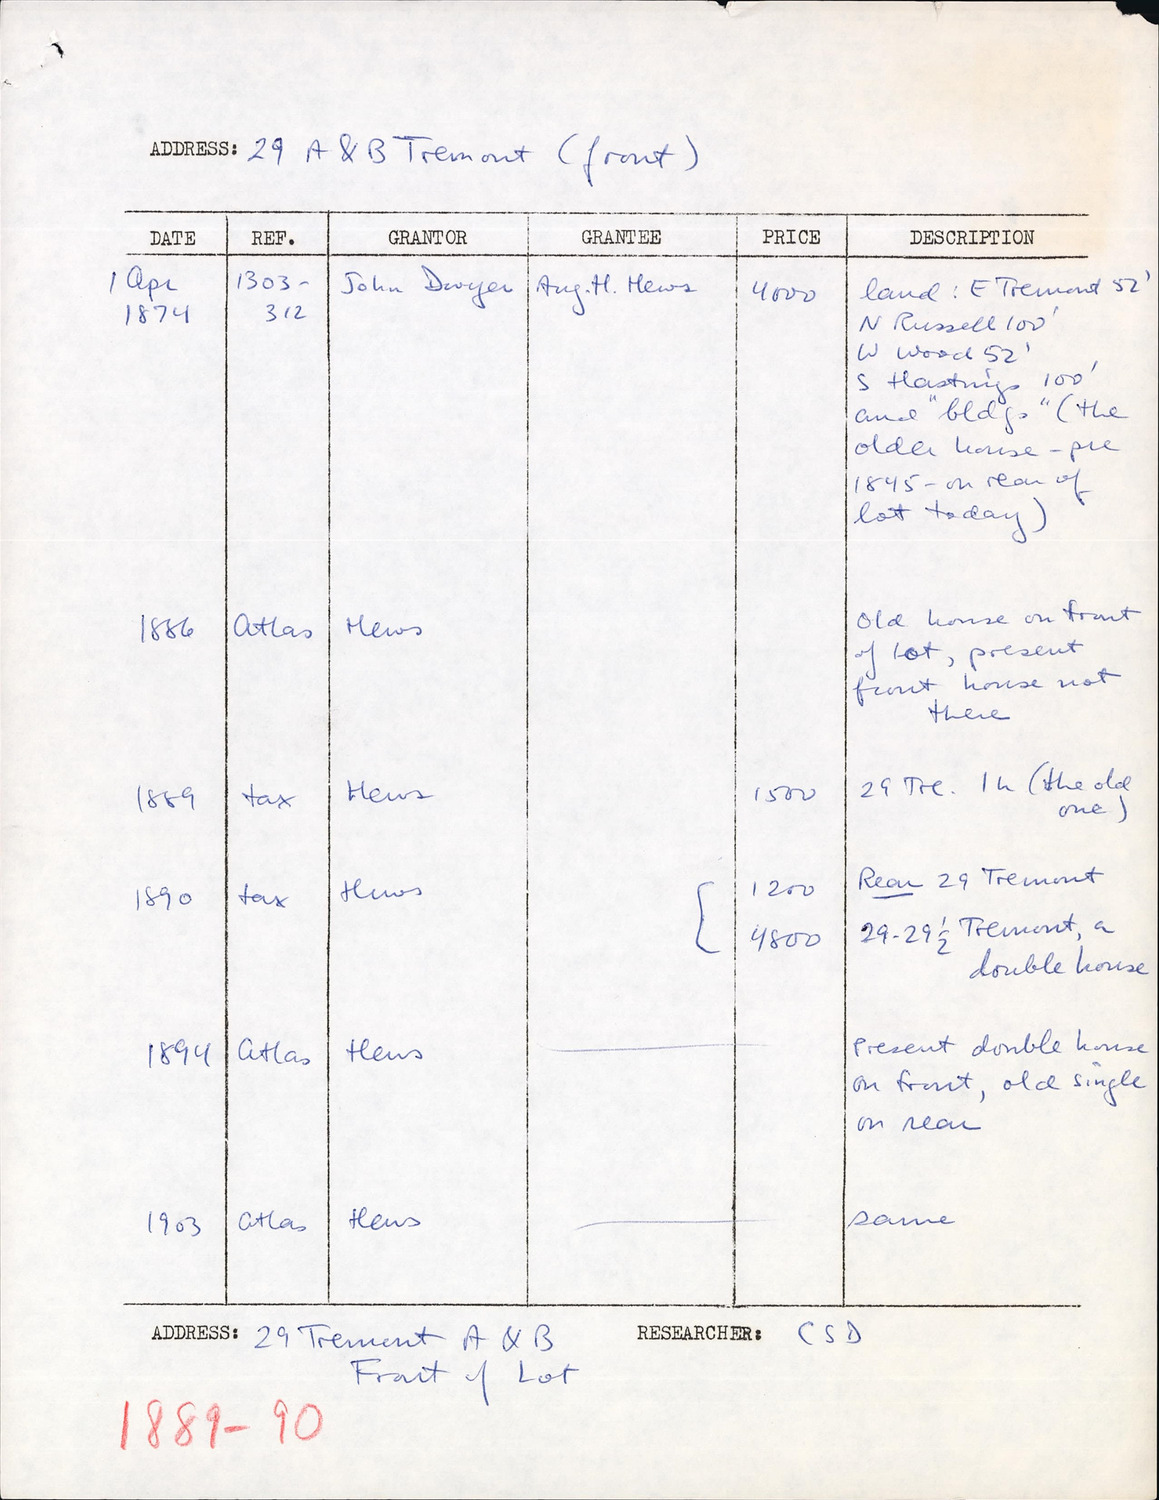 ADDRESS: 29 A & B Tremont (front)
DATE REF. GRANTOR GRANTEE PRICE DESCRIPTION
1 Apr 1303- John Dwyer Aug. H. Hews 4000 land: E Tremont 52'
1874 312
N Russell 100'
W Wood 52'
S Hastings 100'
and "bldgs" (the
older house - pre
1845 - on rear of
lot today)
1886 Atlas Hews Old house on front
of lot, present
front house not
there
1889 tax Hews 1500 29 Tre. 1h (the old
one)
1890 tax Hews 1200 Rear 29 Tremont
4800 29-29½ Tremont, a
double house
1894 Atlas Hews Present double house
on front, old single
on rear
1903 Atlas Hews same
ADDRESS: 29 Tremont A & B RESEARCHER: CSD
Front of Lot
1889-90